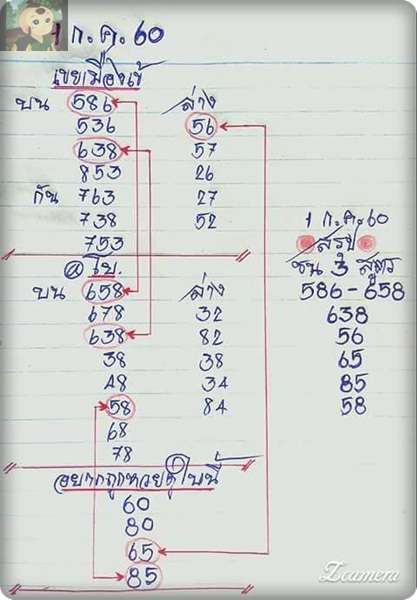 1 ก.ค. 60
เขยเมืองเข้
บน 586 ล่าง
536 56
638 57
853 26
กัน 763 27
738 52
753
@ โบ.
บน 658 ล่าง
678 32
638 82
38 38
48 34
58 84
68
78
อยากถูกหวยดูใบนี้
60
80
65
85
1 ก.ค. 60
สรุป
ชน 3 สูตร
586-658
638
56
65
85
58
Zcamera